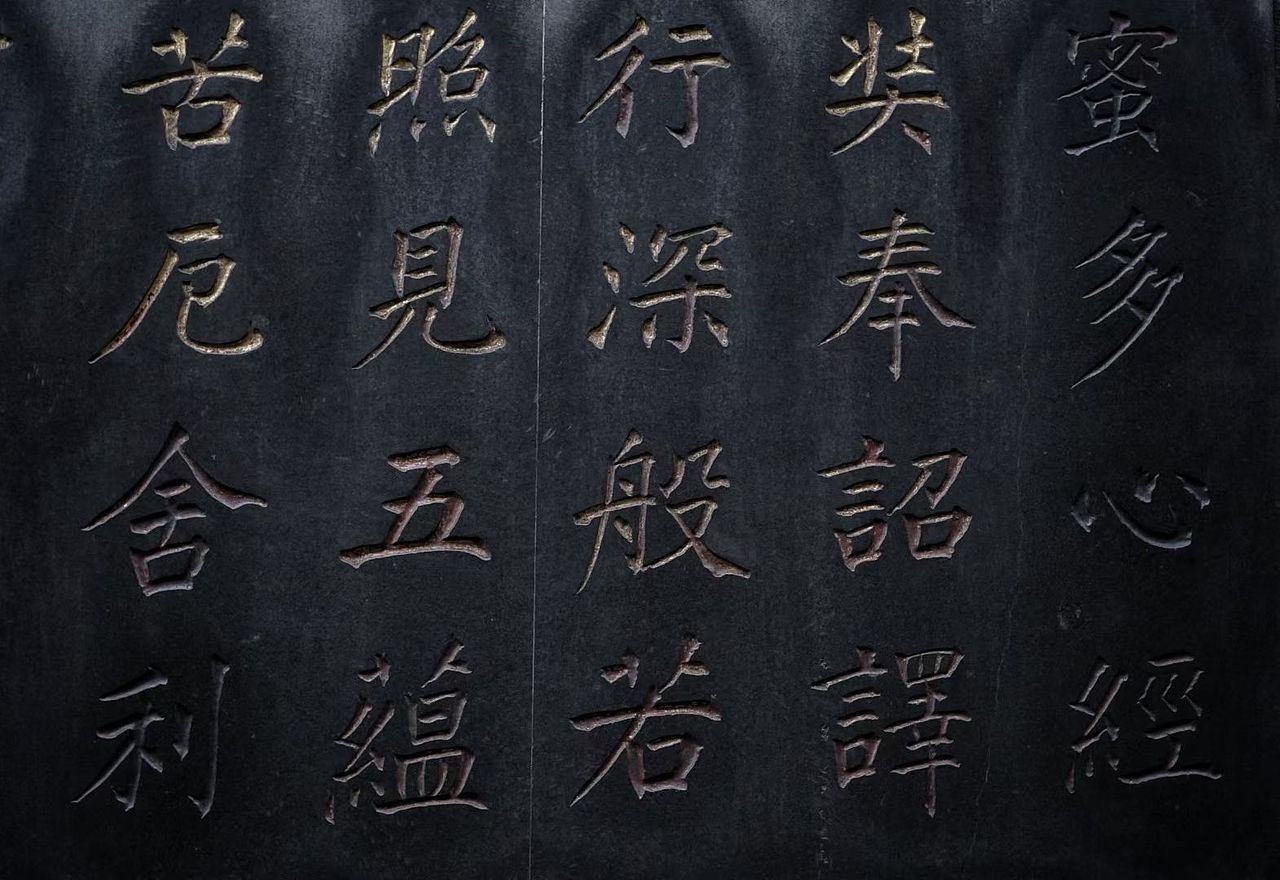 蜜多心經
奘奉詔譯
行深般若
照見五蘊
苦厄舍利